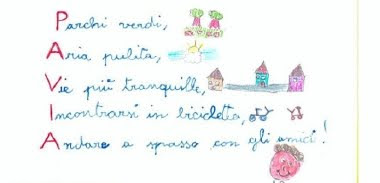 Parchi verdi,
Aria pulita,
Vie più tranquille,
Incontrarsi in bicicletta,
Andare a spasso con gli amici!